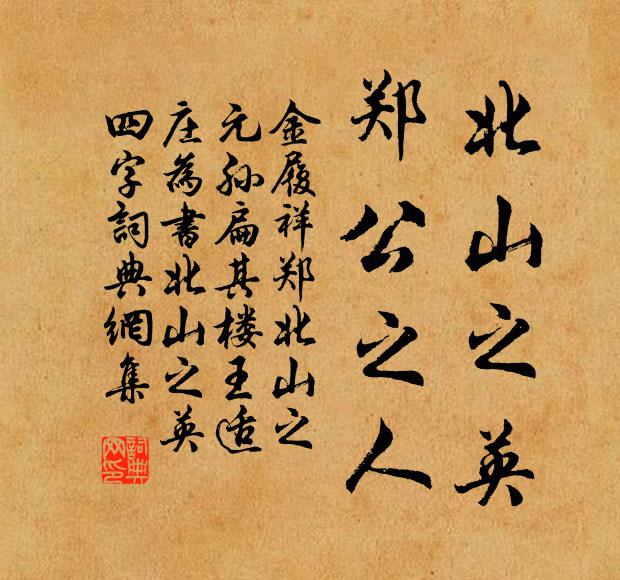 北山之英
郑公之人
金履祥郑北山之
元孙扁其楼王适
庄为書北山之英
四字詞典網集
詞典
网印